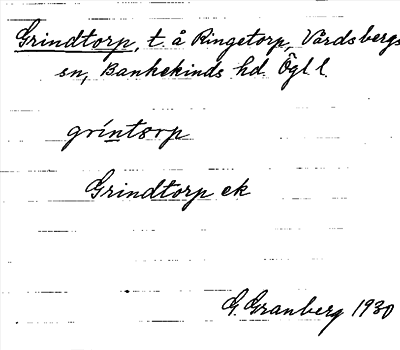 Grindtorp, t. å Ringetorp, Vårdsbergs
sn, Bankekinds hd. Ögl l.
gríntorp
Grindtorp ek
G. Granberg 1930